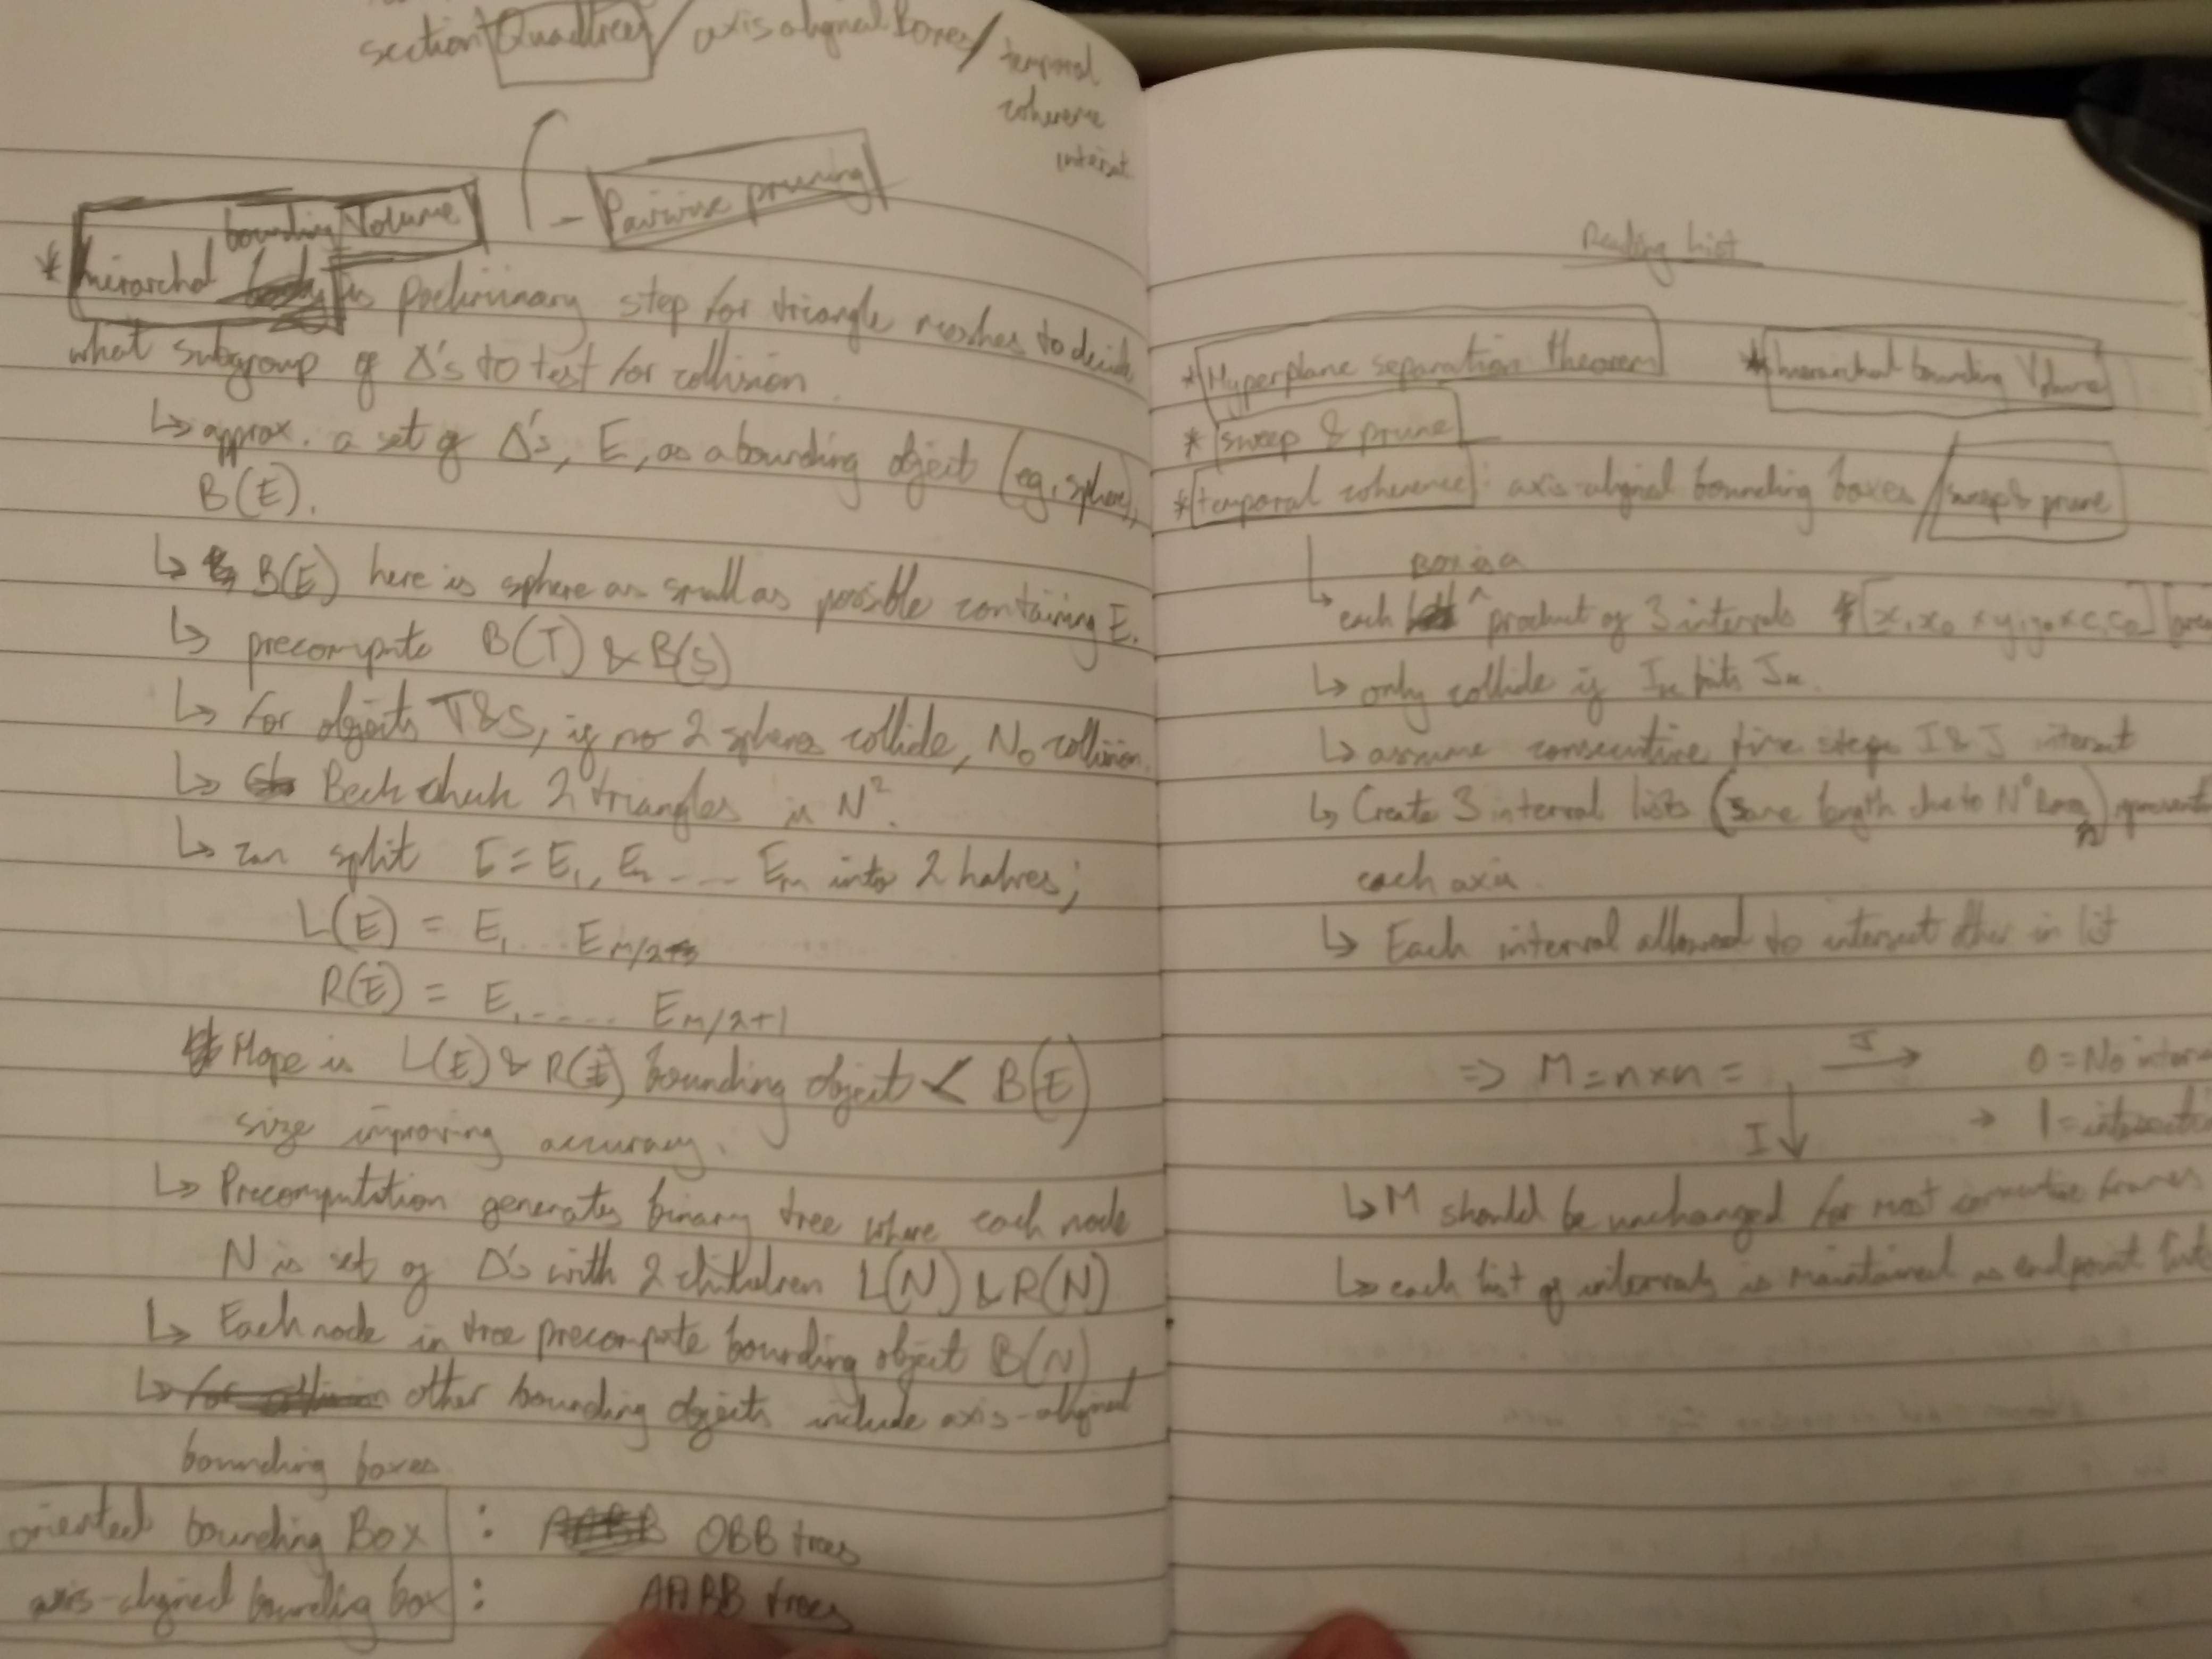 section Quadtrees / axis aligned Boxes /
temporal
coherence
- Pairwise pruning
bounding Volume
* hierarchal is preliminary step for triangle meshes to decide
what subgroup of Δ's to test for collision
↳ approx. a set of Δ's, E, as a bounding object (eg, sphere),
B(E).
↳ B(E) here is sphere as small as possible containing E.
↳ precompute B(T) & B(S)
↳ for objects T&S, if no 2 spheres collide, No collision.
↳ check 2 triangles in N².
↳ can split E = E₁, Eₙ ---- Eₘ into 2 halves;
L(E) = E₁ ... E m/2
R(E) = E₁ ..... E m/2+1
Hope is L(E) & R(E) bounding object < B(E)
size improving accuracy.
↳ Precomputation generates binary tree where each node
N is set of Δ's with 2 children L(N) & R(N)
↳ Each node in tree precompute bounding object B(N)
↳ other bounding objects include axis-aligned
bounding boxes.
oriented bounding Box : OBB trees
axis-aligned bounding box : AABB trees
Reading List
* Hyperplane separation theorem * hierarchal bounding Volume
* sweep & prune
* temporal coherence : axis-aligned bounding boxes / sweep & prune
Box is a
↳ each ^ product of 3 intervals
↳ only collide if Iₓ hits Jₓ.
↳ assume consecutive time steps I & J intersect
↳ Create 3 interval lists (same length due to Nº Boxes)
each axis.
↳ Each interval allowed to intersect other in list
⇒ M = n×n = J → 0 = No
I ↓ → 1 =
↳ M should be unchanged for most consecutive frames
↳ each list of intervals is maintained as endpoint